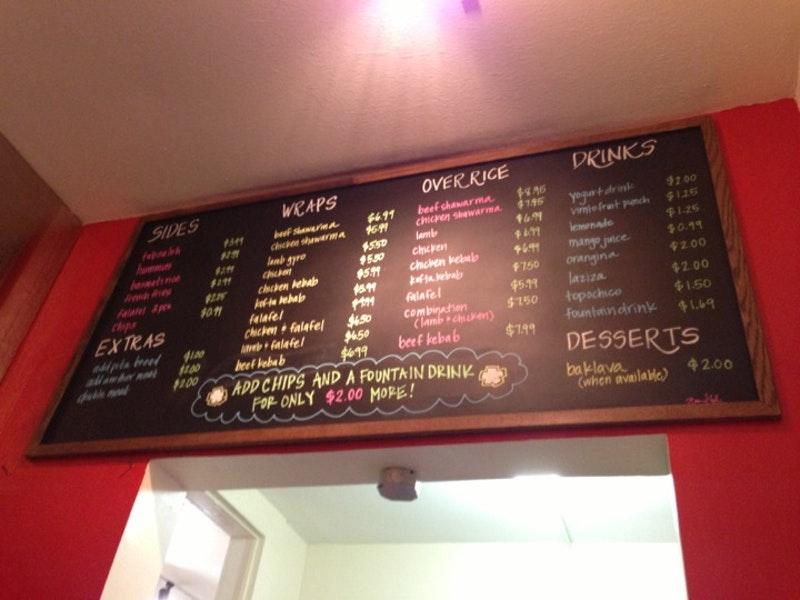 SIDES
tabouleh $3.99
hummus $2.99
basmati rice $2.99
french fries $2.99
falafel 3 pcs
chips $0.99
EXTRAS
add pita bread $1.00
add another meat $2.00
double meat $2.00
WRAPS
beef shawarma $6.99
chicken shawarma $5.99
lamb gyro $5.50
chicken $5.50
chicken kebab $5.99
kofta kebab $5.99
falafel $4.99
chicken + falafel $6.50
lamb + falafel $6.50
beef kebab $6.99
OVER RICE
beef shawarma $8.95
chicken shawarma $7.95
lamb $6.99
chicken $6.99
chicken kebab $6.99
kofta kebab $7.50
falafel $5.99
combination $7.50
(lamb + chicken)
beef kebab $7.99
DRINKS
yogurt drink $2.00
vimto fruit punch $1.25
lemonade $1.25
mango juice $0.99
orangina $2.00
laziza $2.00
topochico $1.50
fountain drink $1.69
DESSERTS
baklava $2.00
(when available)
ADD CHIPS AND A FOUNTAIN DRINK
FOR ONLY $2.00 MORE!